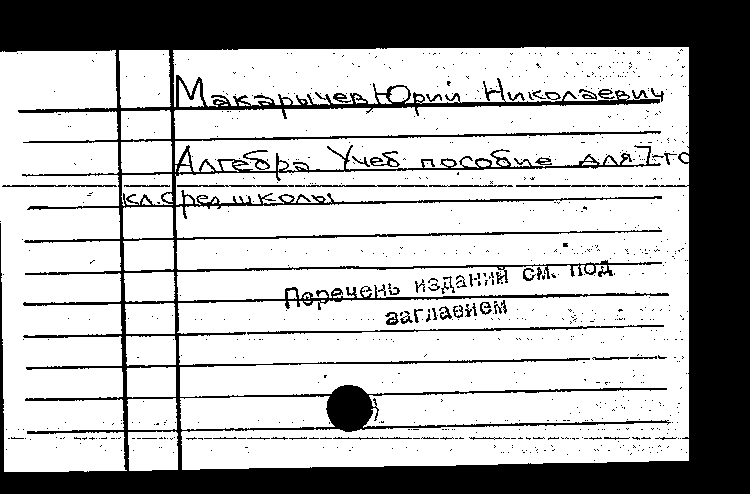 Макарычев, Юрий Николаевич
Алгебра. Учеб пособие для 7-го
кл. сред школы
Перечень изданий см. под
заглавием